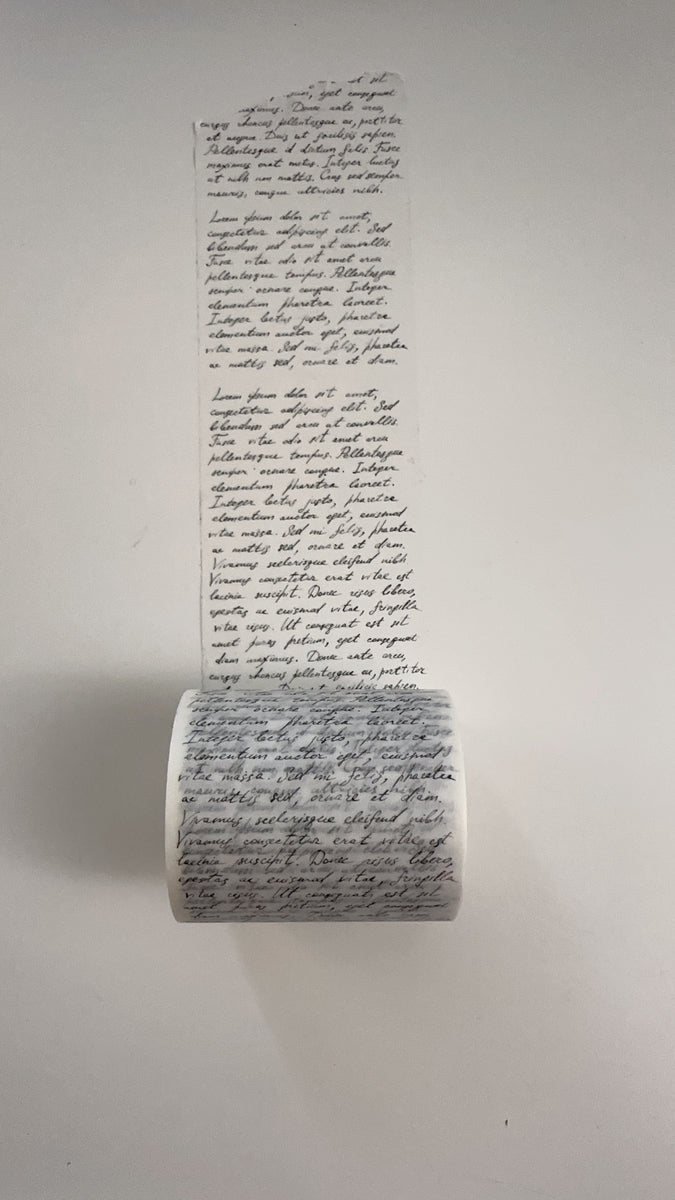 est sit
eget consequat
maximus. Donec ante arcu,
cursus rhoncus pellentesque ac, porttitor
et augue. Duis ut facilisis sapien.
Pellentesque id dictum felis. Fusce
maximus erat metus. Integer luctus
at nibh non mattis. Cras sed semper
mauris, congue ultricies nibh.
Lorem ipsum dolor sit amet,
consectetur adipiscing elit. Sed
bibendum sed arcu at convallis.
Fusce vitae odio sit amet arcu
pellentesque tempus. Pellentesque
semper ornare congue. Integer
elementum pharetra laoreet.
Integer lectus justo, pharetra
elementum auctor eget, euismod
vitae massa. Sed mi felis, pharetra
ac mattis sed, ornare et diam.
Lorem ipsum dolor sit amet,
consectetur adipiscing elit. Sed
bibendum sed arcu at convallis.
Fusce vitae odio sit amet arcu
pellentesque tempus. Pellentesque
semper ornare congue. Integer
elementum pharetra laoreet.
Integer lectus justo, pharetra
elementum auctor eget, euismod
vitae massa. Sed mi felis, pharetra
ac mattis sed, ornare et diam.
Vivamus scelerisque eleifend nibh
Vivamus consectetur erat vitae est
lacinia suscipit. Donec risus libero,
egestas ac euismod vitae, fringilla
vitae risus. Ut consequat est sit
amet purus pretium, eget consequat
diam maximus. Donec ante arcu,
cursus rhoncus pellentesque ac, porttitor
Duis ut facilisis sapien.
pellentesque tempus. Pellentesque
semper ornare congue. Integer
elementum pharetra laoreet.
Integer lectus justo, pharetra
elementum auctor eget, euismod
vitae massa. Sed mi felis, pharetra
ac mattis sed, ornare et diam.
Vivamus scelerisque eleifend nibh
Vivamus consectetur erat vitae est
lacinia suscipit. Donec risus libero,
egestas ac euismod vitae, fringilla
vitae risus. Ut consequat est sit
amet purus pretium, eget consequat